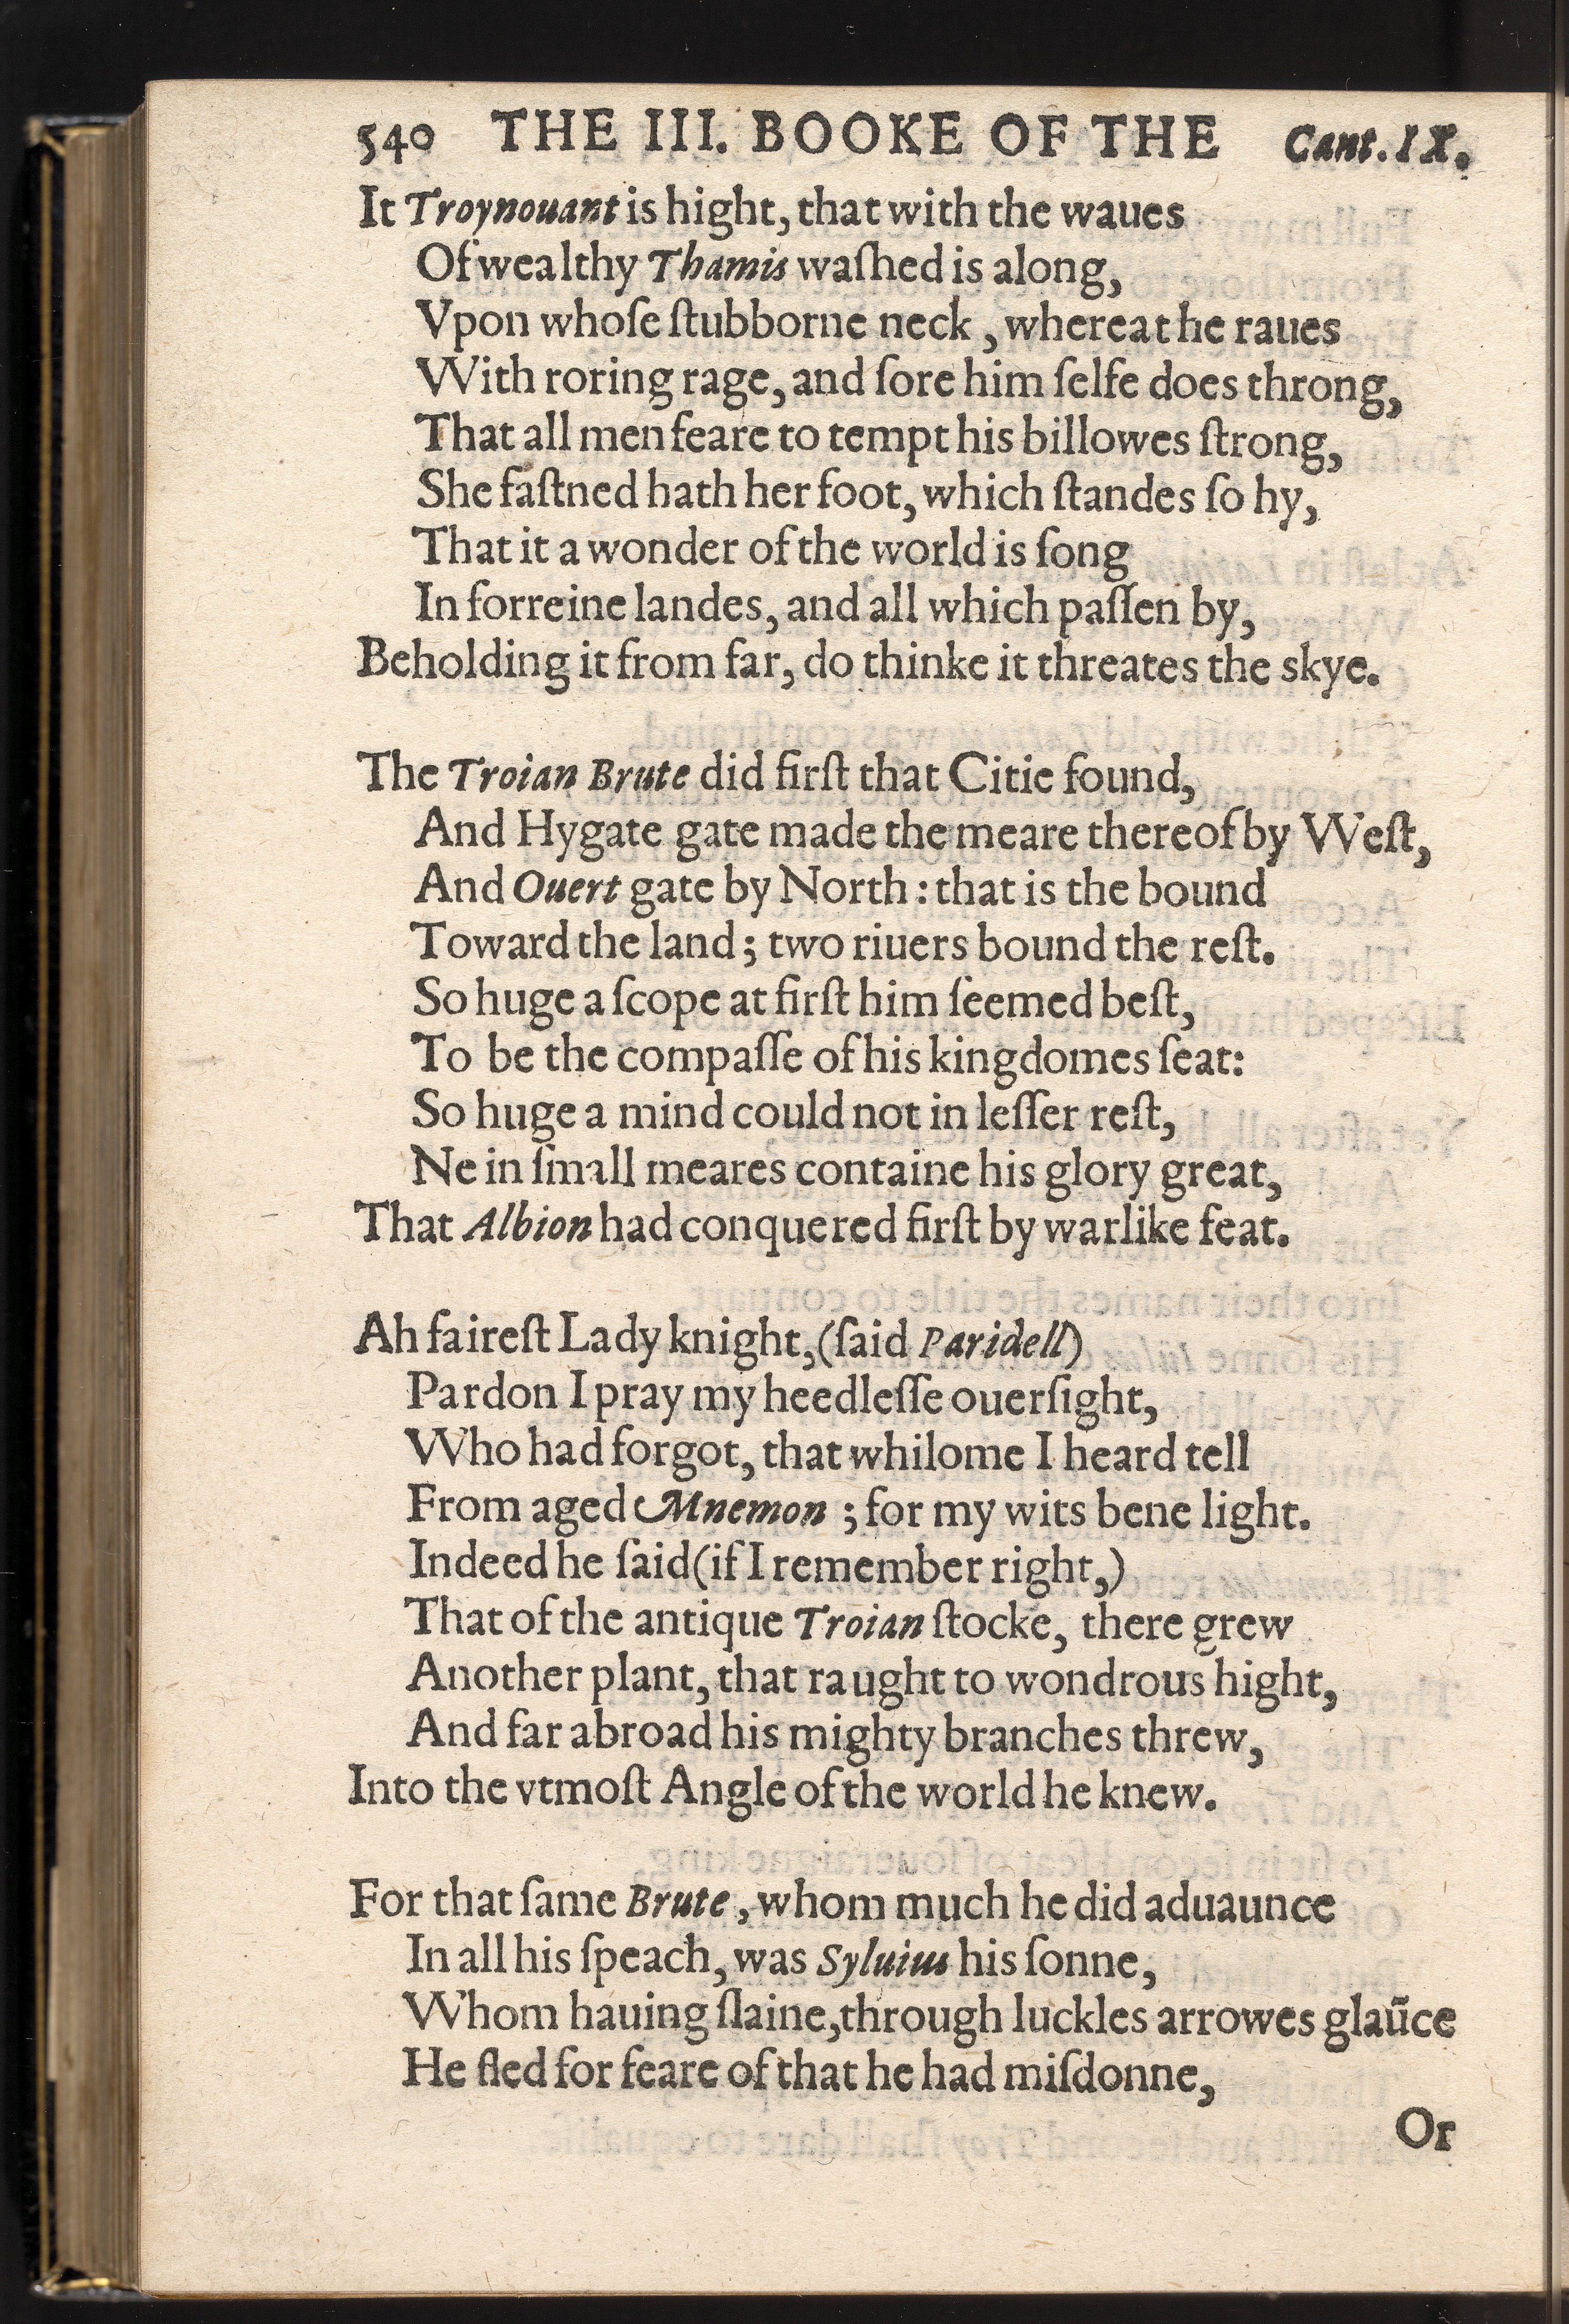 540 THE III. BOOKE OF THE Cant. IX.
It Troynouant is hight, that with the waues
Of wealthy Thamis waſhed is along,
Vpon whoſe ſtubborne neck, whereat he raues
With roring rage, and ſore him ſelfe does throng,
That all men feare to tempt his billowes ſtrong,
She faſtned hath her foot, which ſtandes ſo hy,
That it a wonder of the world is ſong
In forreine landes, and all which paſſen by,
Beholding it from far, do thinke it threates the skye.
The Troian Brute did firſt that Citie found,
And Hygate gate made the meare thereof by Weſt,
And Ouert gate by North: that is the bound
Toward the land; two riuers bound the reſt.
So huge a ſcope at firſt him ſeemed beſt,
To be the compaſſe of his kingdomes ſeat:
So huge a mind could not in leſſer reſt,
Ne in ſmall meares containe his glory great,
That Albion had conquered firſt by warlike feat.
Ah faireſt Lady knight, (ſaid Paridell)
Pardon I pray my heedleſſe ouerſight,
Who had forgot, that whilome I heard tell
From aged Mnemon; for my wits bene light.
Indeed he ſaid (if I remember right,)
That of the antique Troian ſtocke, there grew
Another plant, that raught to wondrous hight,
And far abroad his mighty branches threw,
Into the vtmoſt Angle of the world he knew.
For that ſame Brute, whom much he did aduaunce
In all his ſpeach, was Syluius his ſonne,
Whom hauing ſlaine, through luckles arrowes glaũce
He fled for feare of that he had miſdonne,
Or